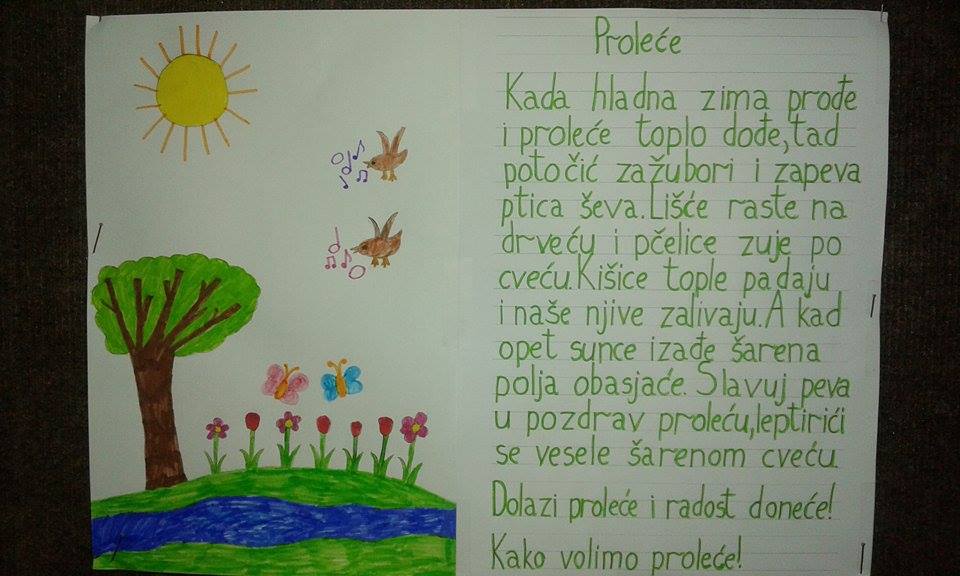 Proleće
Kada hladna zima prođe
i proleće toplo dođe,tad
potočić zažubori i zapeva
ptica ševa.Lišće raste na
drveću i pčelice zuje po
cveću.Kišice tople padaju
i naše njive zalivaju.A kad
opet sunce izađe šarena
polja obasjaće. Slavuj peva
u pozdrav proleću,leptirići
se vesele šarenom cveću
Dolazi proleće i radost doneće!
Kako volimo proleće!